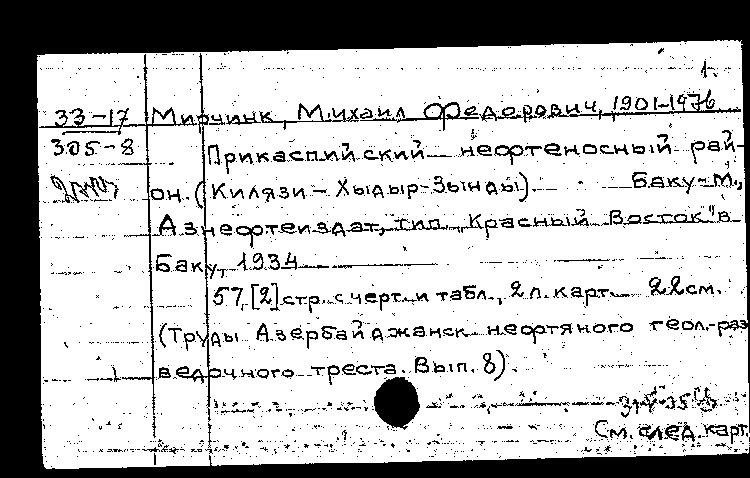 1.
33-17 Мирчинк, Михаил Федорович, 1901-1976
305-8 Прикаспийский нефтеносный рай-
он. (Килязи - Хыдыр-Зынды). Баку-М.,
Азнефтеиздат, тип. "Красный Восток" в
Баку, 1934
57, [2] стр. с черт. и табл., 2 л. карт. 22 см.
(Труды Азербайджанск. нефтяного геол.-раз
ведочного треста. Вып. 8).
См. след. карт.